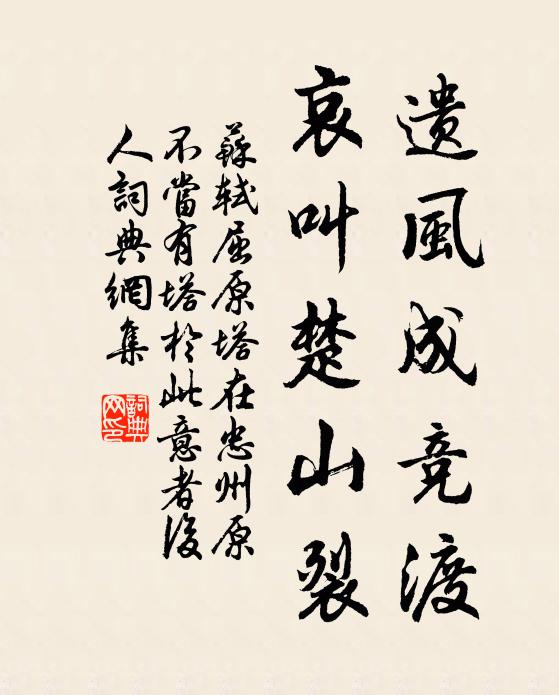 遗風成竞渡
哀叫楚山裂
蘇轼屈原塔在忠州原
不當有塔於此意者後
人詞典網集
詞典網印